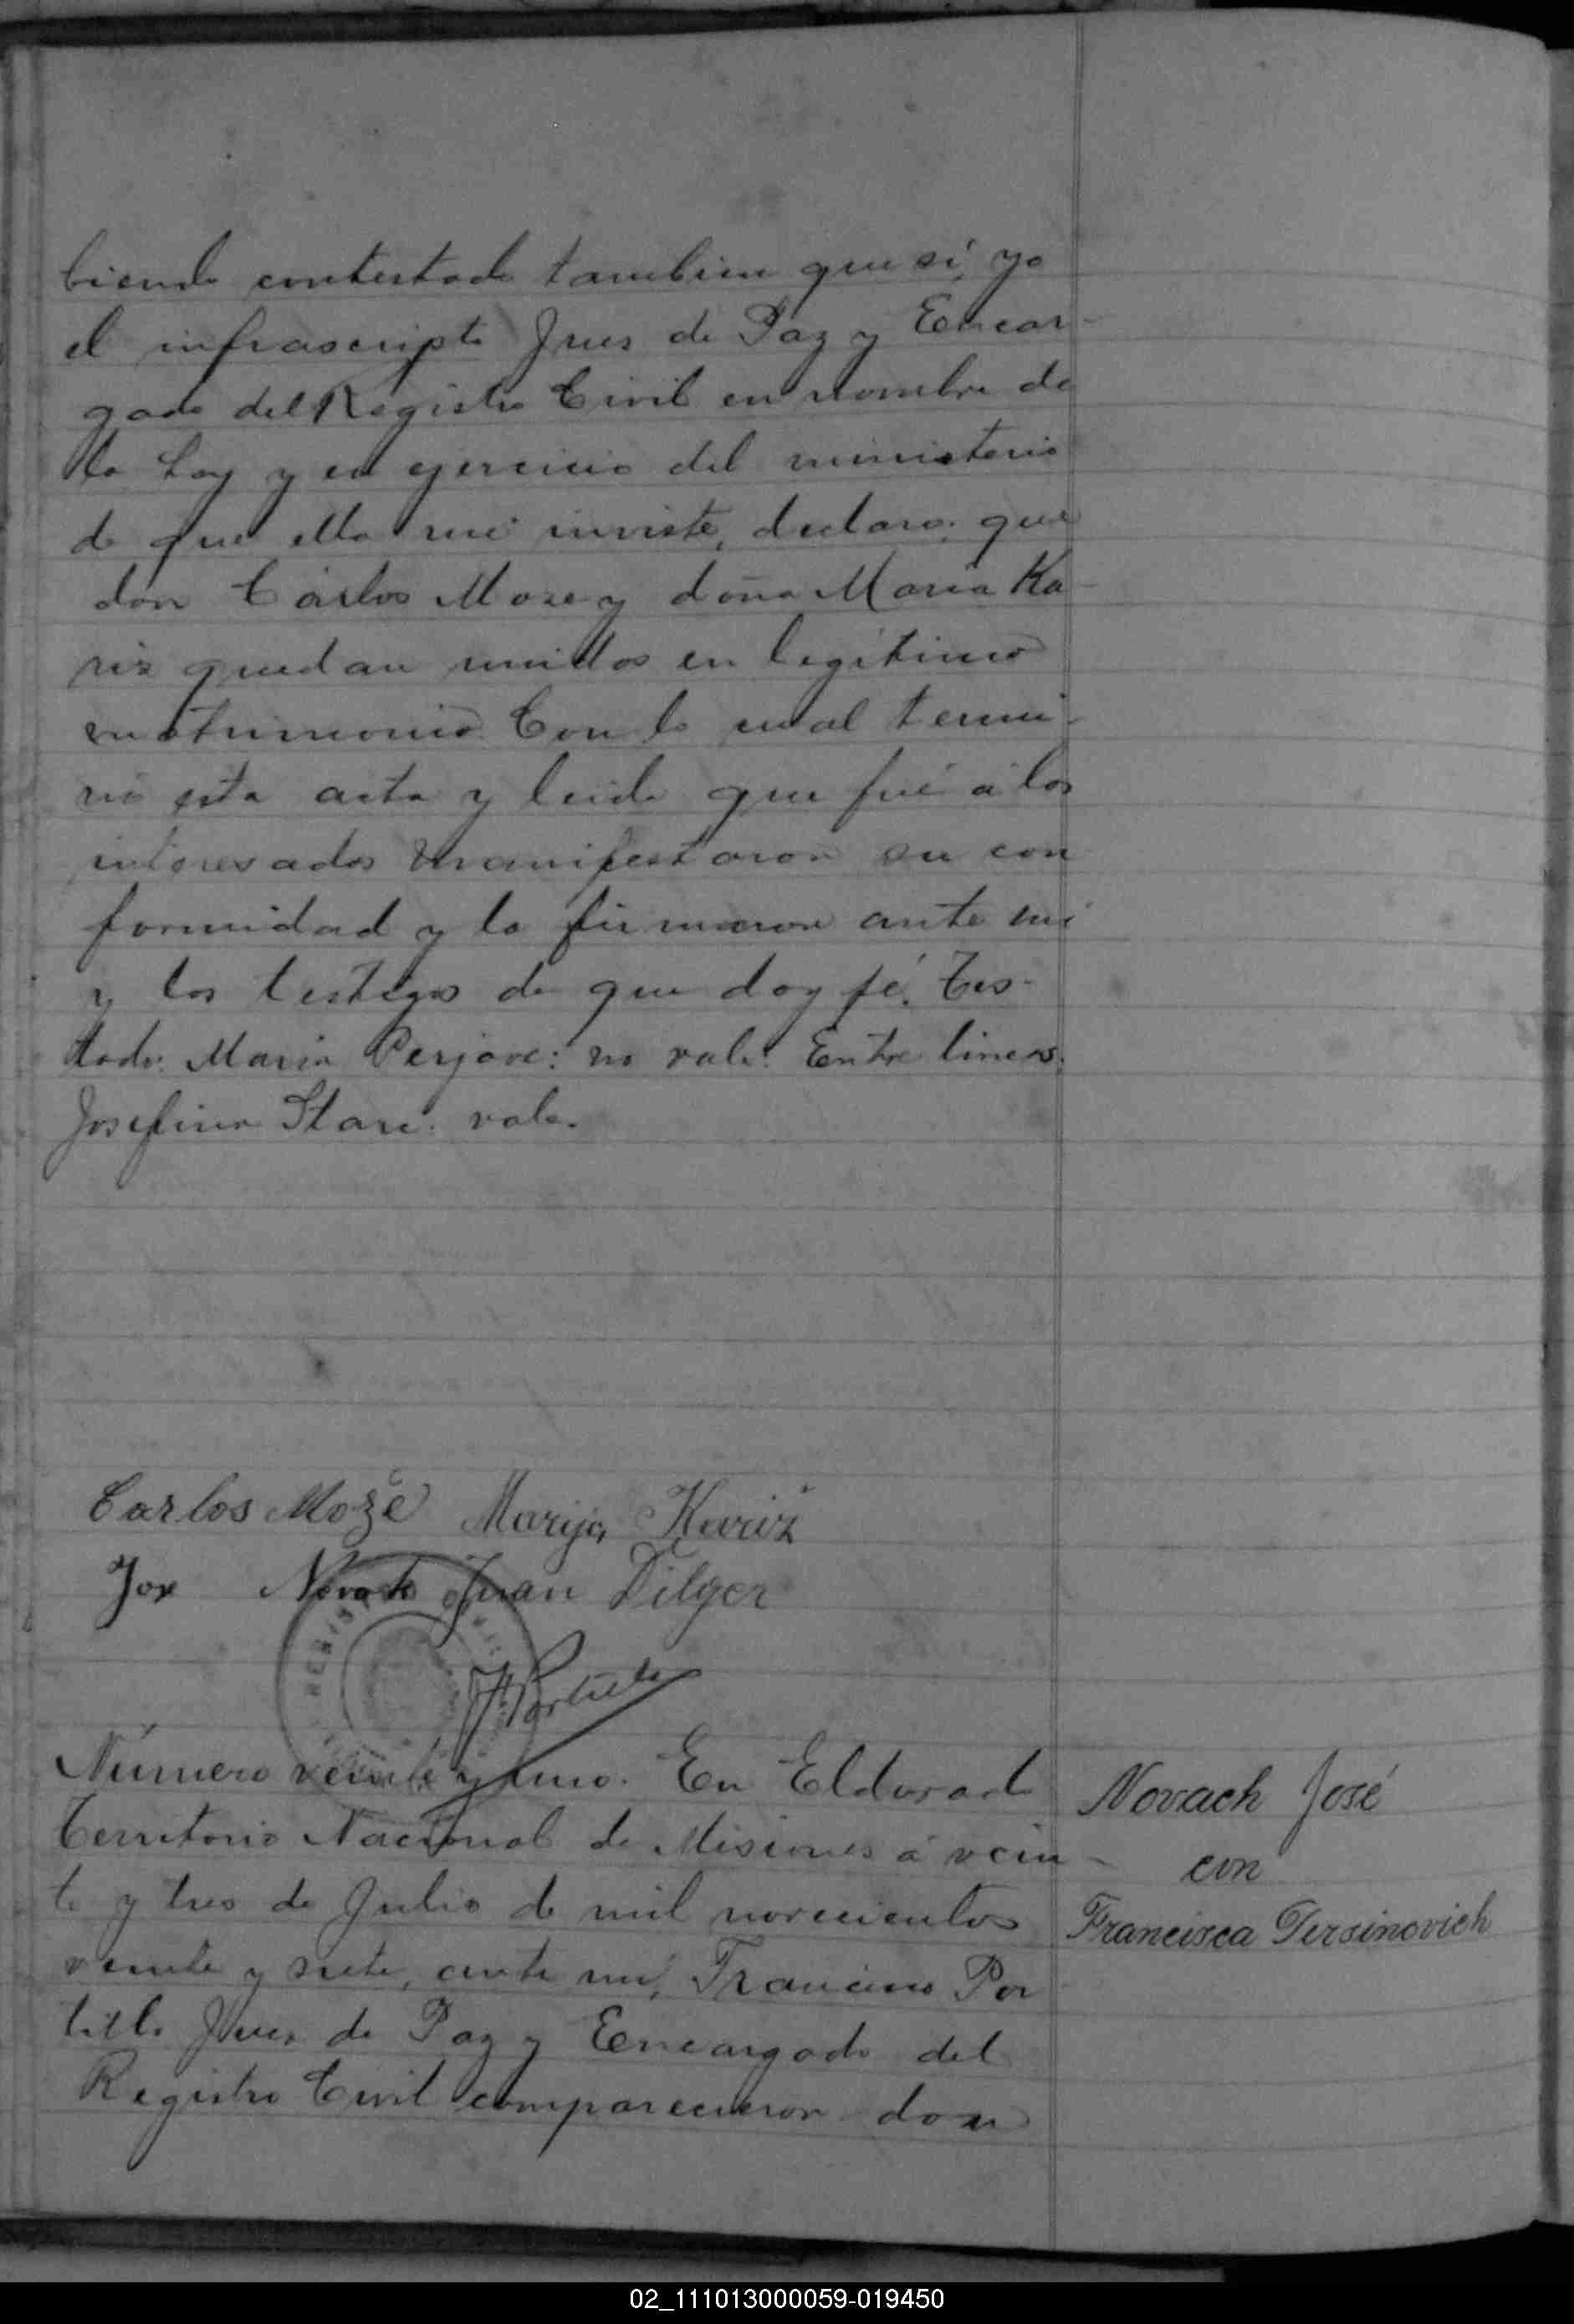 biendo contestado tambien que sí, yo
el infrascripto Jues de Paz y Encar-
gado del Registro Civil en nombre de
la Ley y en ejercicio del ministerio
de que ella me inviste, declaro: que
don Cárlos Moze y doña María Ka-
riz quedan unidos en legítimo
matrimonio. Con lo cual termi-
nó esta acta y leida que fué á los
interesados manifestaron su con
formidad y la firmaron ante mi
y los testigos de que doy fé. Tes-
tado: María Perjave: no vale. Entre lineas:
Josefina Stare: vale.
Carlos Može Marija Kariž
Novak Juan Dilger
Portillo
Número veinte y uno. En Eldorado
Territorio Nacional de Misiones á vein-
te y tres de Julio de mil novecientos
veinte y siete, ante mí, Francisco Por
tillo Jues de Paz y Encargado del
Registro Civil comparecieron don
Novach José
con
Francisca Tersinovich
02_111013000059-019450